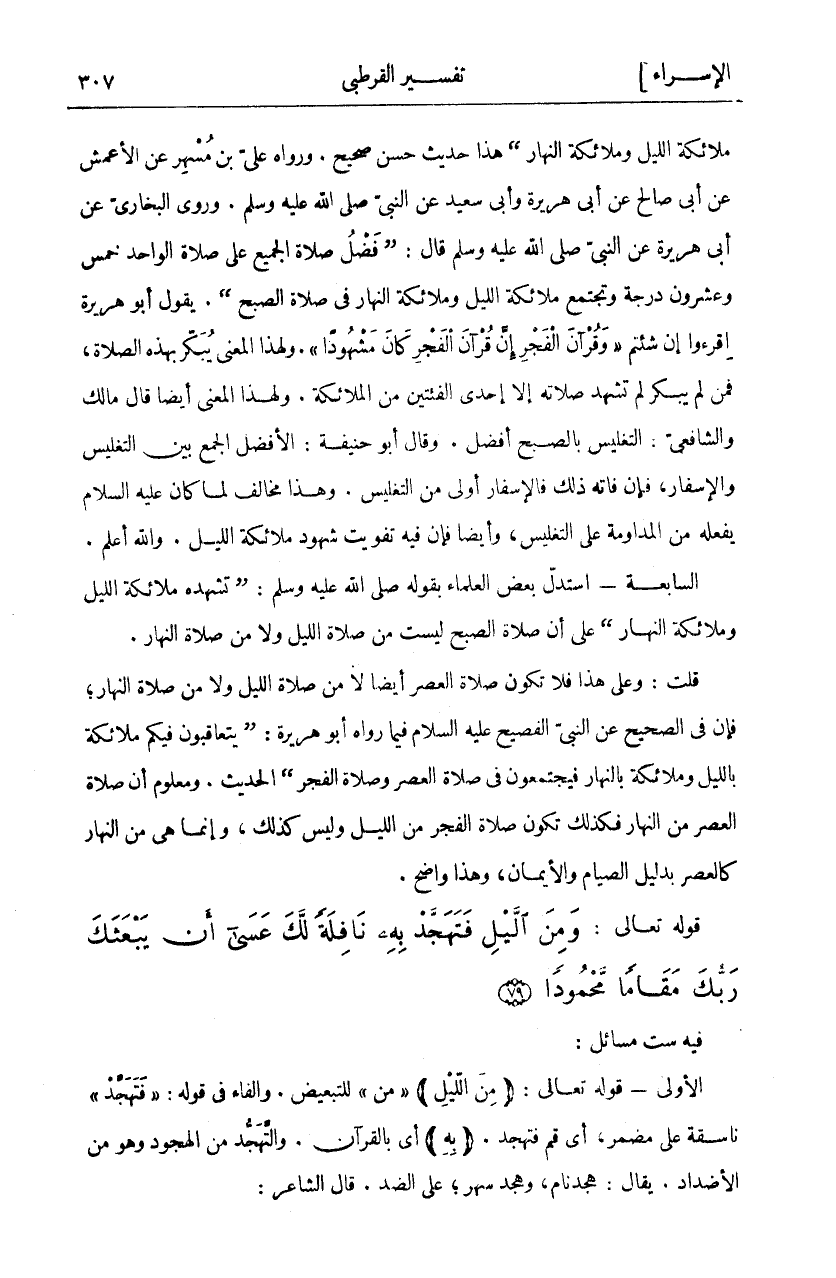 الإســـراء ] تفســـير القرطبى ٣٠٧
ملائكة الليل وملائكة النهار “ هذا حديث حسن صحيح . ورواه علىّ بن مُسْهِر عن الأعمش
عن أبى صالح عن أبى هريرة وأبى سعيد عن النبىّ صلى الله عليه وسلم . وروى البخارىّ عن
أبى هريرة عن النبىّ صلى الله عليه وسلم قال : ” فَضْلُ صلاة الجميع على صلاة الواحد خمس
وعشرون درجة وتجتمع ملائكة الليل وملائكة النهار فى صلاة الصبح “ . يقول أبو هريرة
اقرءوا إن شئتم « وَقُرْآنَ الْفَجْرِ إِنَّ قُرْآنَ الْفَجْرِ كَانَ مَشْهُودًا » . ولهذا المعنى يُبَكَّر بهذه الصلاة ،
فمن لم يبكر لم تشهد صلاته إلا إحدى الفئتين من الملائكة . ولهـذا المعنى أيضا قال مالك
والشافعىّ : التغليس بالصبح أفضل . وقال أبو حنيفة : الأفضل الجمع بين التغليس
والإسفار، فإن فاته ذلك فالإسفار أولى من التغليس . وهـذا مخالف لما كان عليه السلام
يفعله من المداومة على التغليس، وأيضا فإن فيه تفويت شهود ملائكة الليـل . والله أعلم .
السابعـــة — استدلّ بعض العلماء بقوله صلى الله عليه وسلم : ” تشهده ملائكة الليل
وملائكة النهـار “ على أن صلاة الصبح ليست من صلاة الليل ولا من صلاة النهار .
قلت : وعلى هذا فلا تكون صلاة العصر أيضا لا من صلاة الليل ولا من صلاة النهار؛
فإن فى الصحيح عن النبىّ الفصيح عليه السلام فيما رواه أبو هريرة : ” يتعاقبون فيكم ملائكة
بالليل وملائكة بالنهار فيجتمعون فى صلاة العصر وصلاة الفجر “ الحديث . ومعلوم أن صلاة
العصر من النهار فكذلك تكون صلاة الفجر من الليـل وليس كذلك ، وإنمـا هى من النهار
كالعصر بدليل الصيام والأيمـان، وهذا واضح .
قوله تعـالى : وَمِنَ ٱلَّيْلِ فَتَهَجَّدْ بِهِۦ نَافِلَةً لَّكَ عَسَىٰٓ أَن يَبْعَثَكَ
رَبُّكَ مَقَـامًا مَّحْمُودًا ٧٩
فيه ست مسائل :
الأولى — قوله تعـالى : ﴿ مِنَ اللَّيْلِ ﴾ « من » للتبعيض . والفاء فى قوله : « فَتَهَجَّدْ »
ناسقة على مضمر، أى قم فتهجد . ﴿ بِهِ ﴾ أى بالقرآن . والتَّهَجُّد من الهجود وهو من
الأضداد . يقال : هجد نام، وهجد سهر؛ على الضد . قال الشاعر :